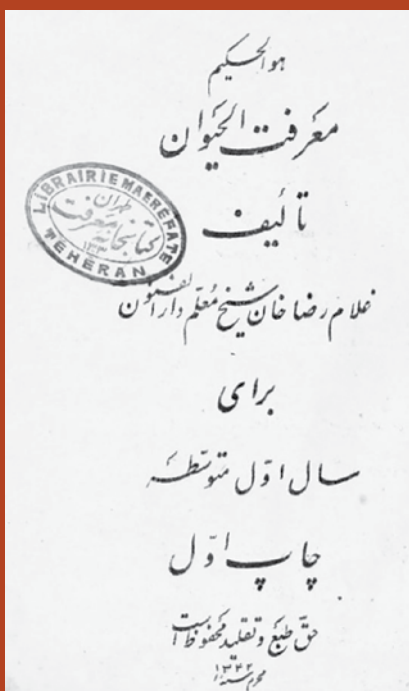 هوالحکیم
معرفت الحیوان
تألیف
LIBRAIRIE MAEREFATE
طهران
کتابخانه معرفت
TEHERAN
غلام رضا خان شیخ معلم دارالفنون
برای
سال اوّل متوسطه
چاپ اوّل
حقّ طبع و تقلید محفوظ است
محرم سنه ۱۳۴۲